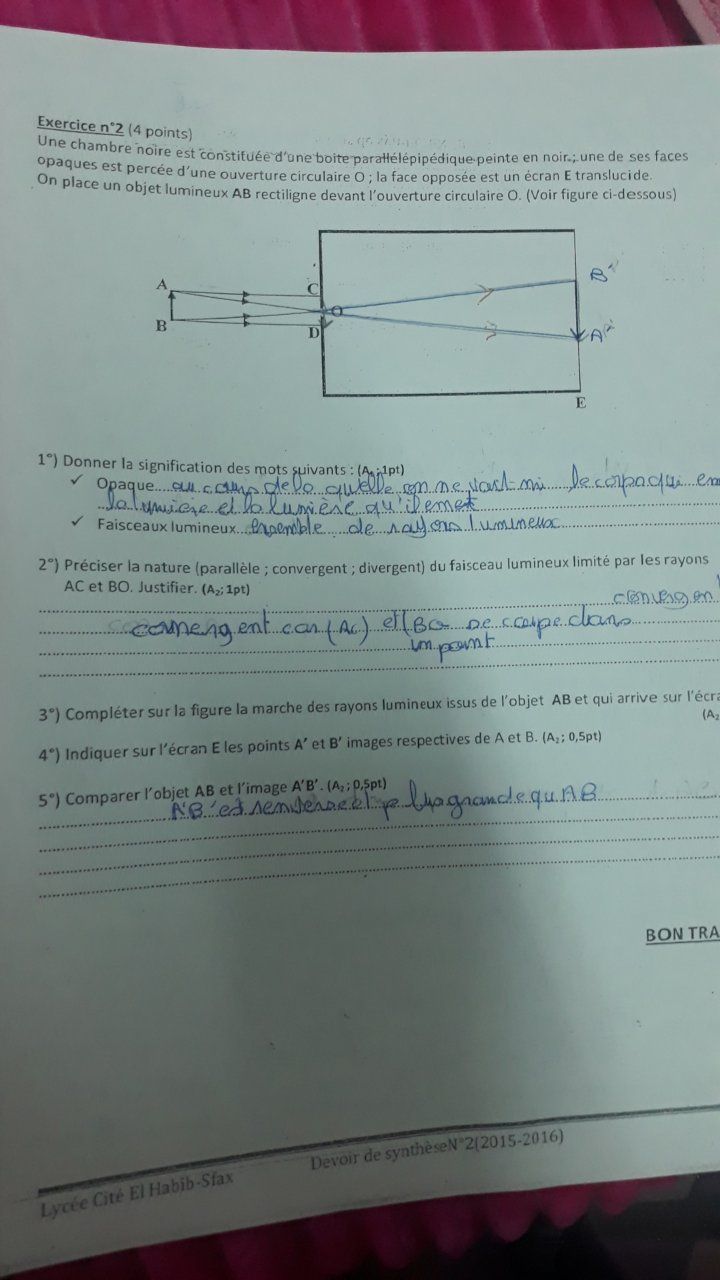 Exercice n°2 (4 points)
Une chambre noire est constituée d'une boite parallélépipédique peinte en noir ; une de ses faces
opaques est percée d'une ouverture circulaire O ; la face opposée est un écran E translucide.
On place un objet lumineux AB rectiligne devant l'ouverture circulaire O. (Voir figure ci-dessous)
A
C
B'
O
B
D
A'
E
1°) Donner la signification des mots suivants : (A₁ ; 1pt)
✓ Opaque
la lumière et la lumière qu'il emet
✓ Faisceaux lumineux ensemble de rayons lumineux
2°) Préciser la nature (parallèle ; convergent ; divergent) du faisceau lumineux limité par les rayons
AC et BO. Justifier. (A₂ ; 1pt)
convergent car (AC) et (BO se coupe dans
un point
3°) Compléter sur la figure la marche des rayons lumineux issus de l'objet AB et qui arrive sur l'écra
(A₂
4°) Indiquer sur l'écran E les points A' et B' images respectives de A et B. (A₂ ; 0,5pt)
5°) Comparer l'objet AB et l'image A'B'. (A₂ ; 0,5pt)
A'B' est grande qu AB
BON TRA
Lycée Cité El Habib-Sfax Devoir de synthèseN°2(2015-2016)